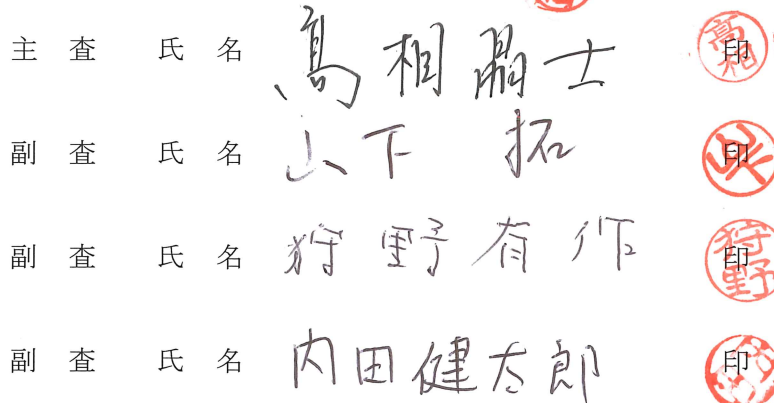 主 査 氏 名 高相晶士 印 高相
副 査 氏 名 山下 拓 印
副 査 氏 名 狩野有作 印 狩野
副 査 氏 名 内田健太郎 印